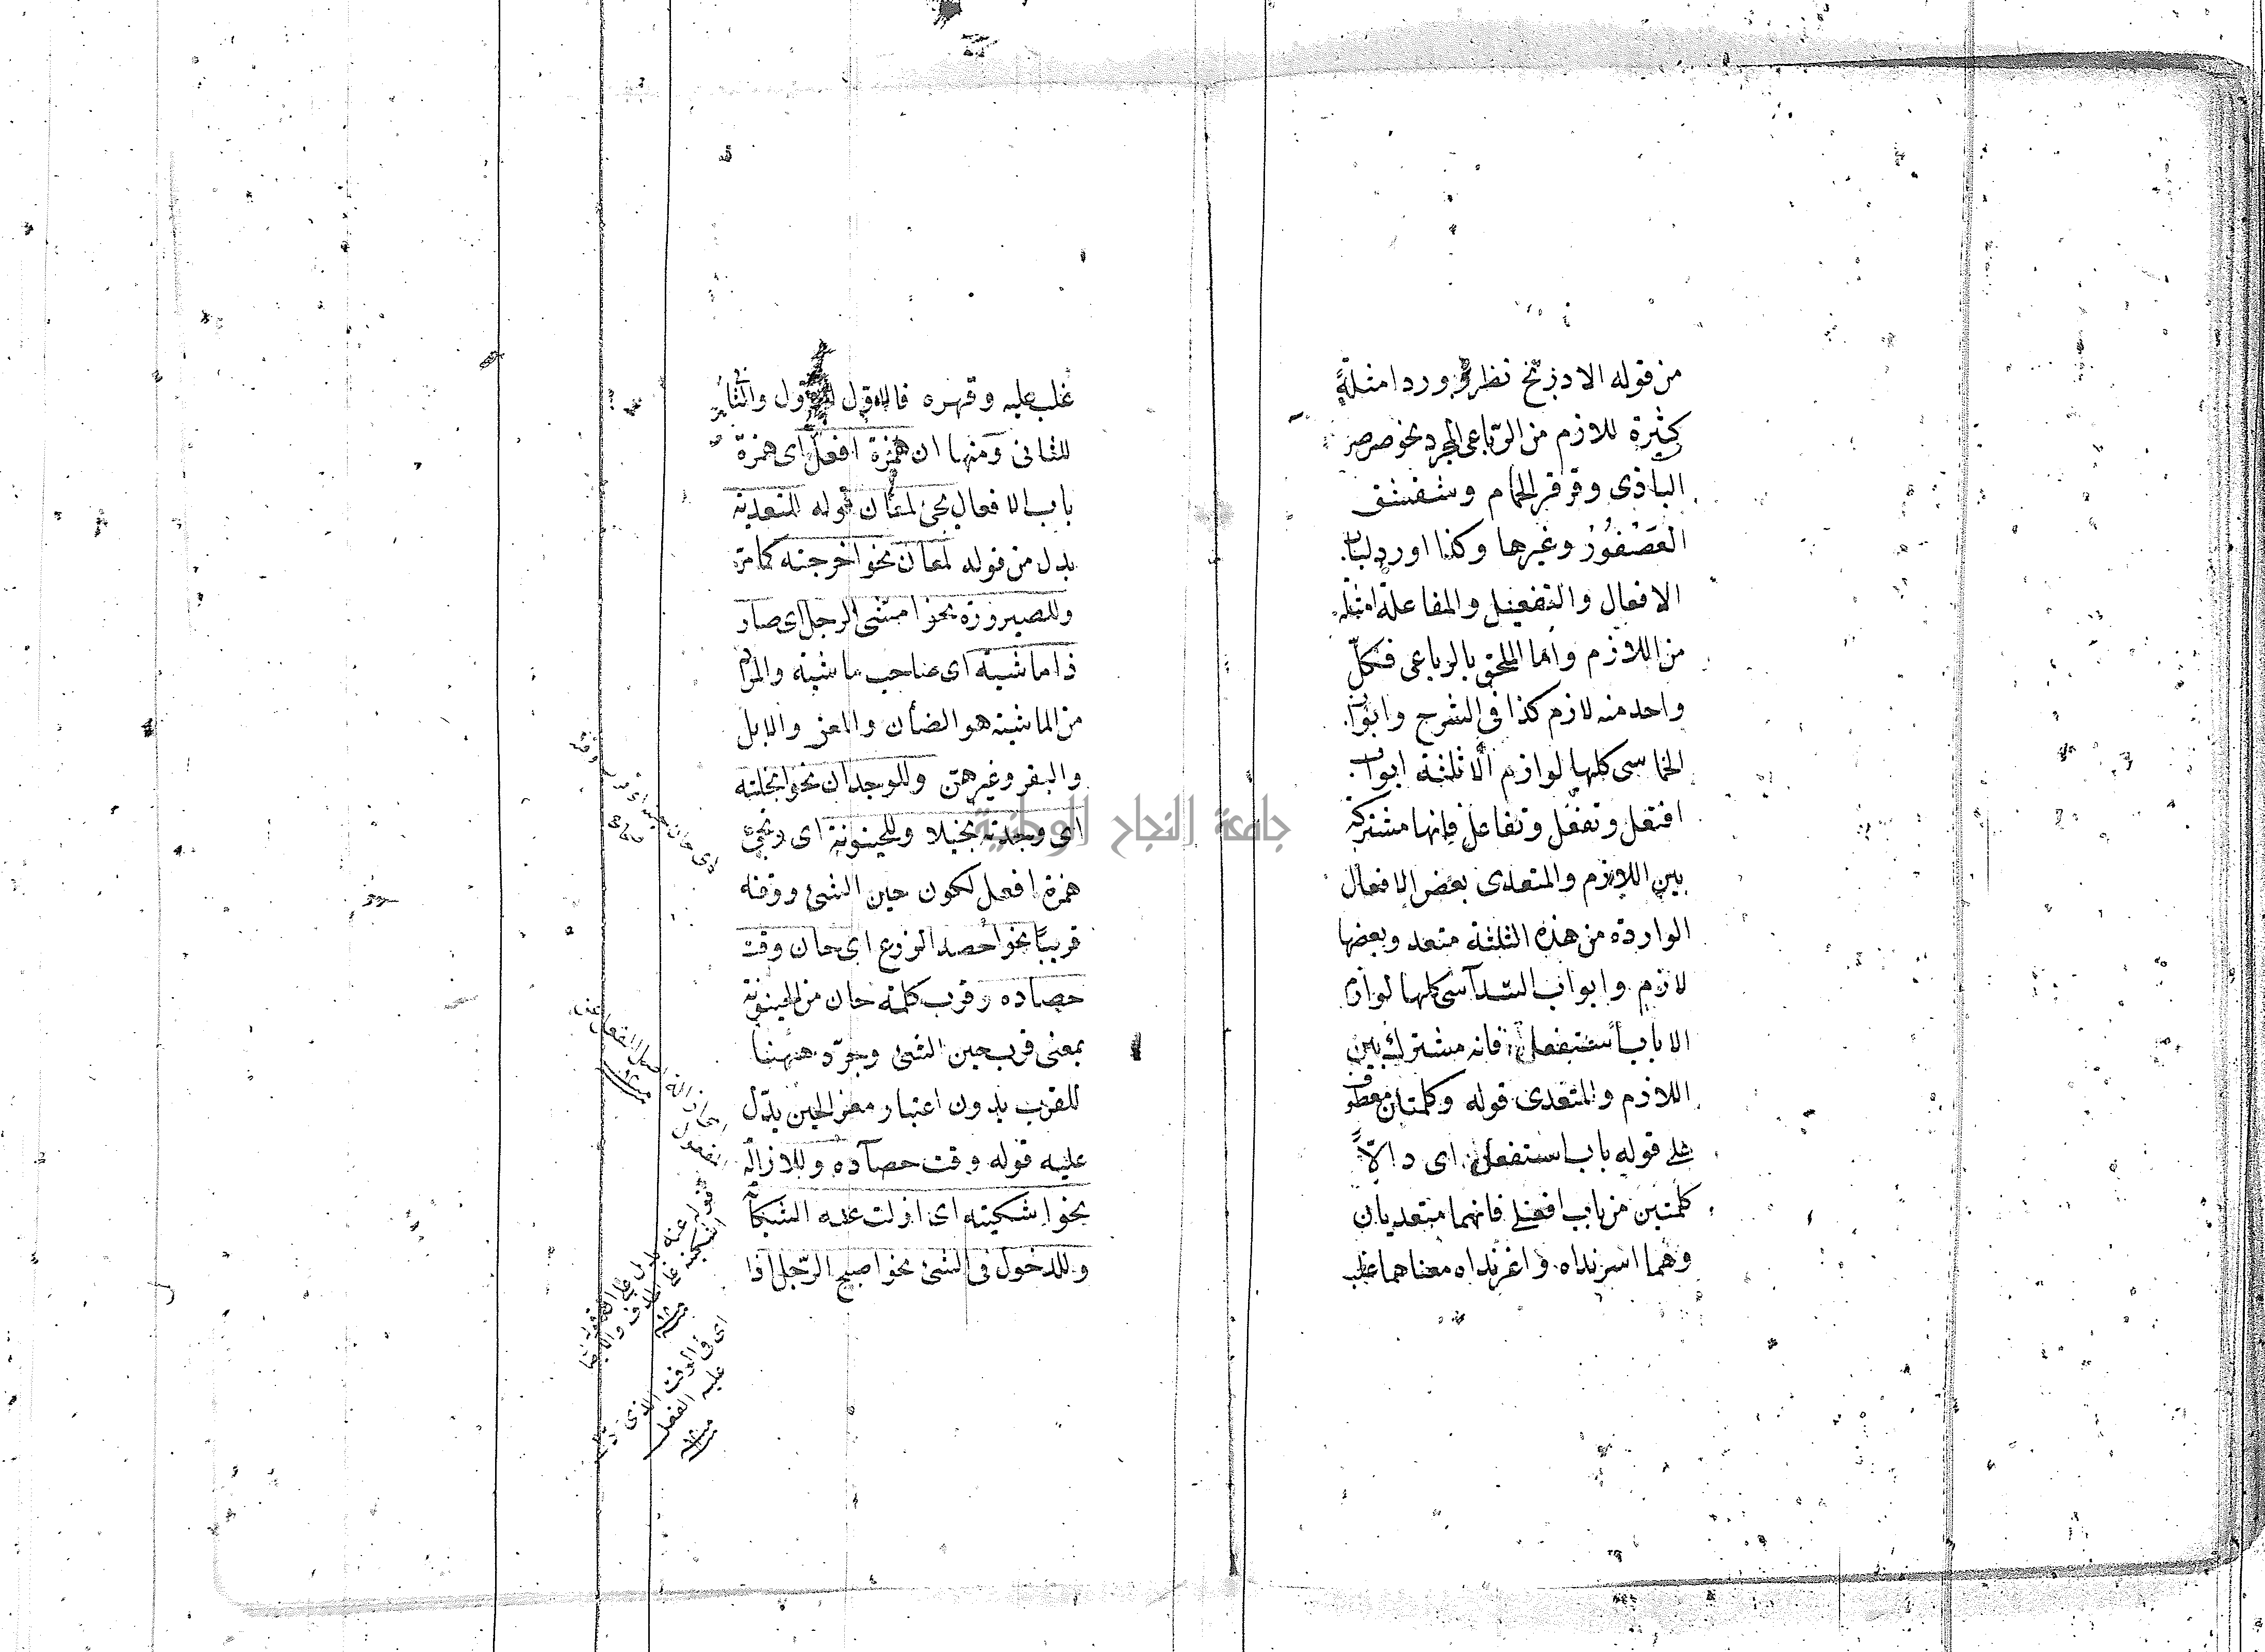 من قوله الا دربخ نظر وورد امثلة
كثيرة للازم من الرباعى المجرد نحو صرصر
البازى وقرقر الحمام وشقشق
العُصْفُورُ وغيرها وكذا اورد لباب
الافعال والتفعيل والمفاعلة امثلة
من اللازم واما الملحق بالرباعى فكلّ
واحد منه لازم كذا فى الشرح وابواب
الخماسى كلها لوازم الّا ثلثة ابواب
افتعل وتفعّل وتفاعل فانها مشتركة
بين اللازم والمتعدى بعض الافعال
الواردة من هذه الثلثة متعد وبعضها
لازم وابواب السّداسى كلها لوازم
الا باب استفعل فانه مشترك بين
اللازم والمتعدى قوله وكلمتان معطوف
على قوله باب استفعل اى دالّا
كلمتين من باب افعنلى فانهما متعديان
وهما اسرنداه واغرنداه معناهما غلب
غلب عليه وقهره فالاول للاول والثانى
للثانى ومنها ان همزة افعل اى همزة
باب الافعال يجئ لمعان قوله للتعدية
بدل من قوله لمعان نحو اخرجته كما مرّ
وللصيرورة نحو امشى الرجل اى صار
ذا ماشية اى صاحب ماشية والمراد
من الماشية هو الضأن والمعز والابل
والبقر وغيرهنّ وللوجدان نحو ابخلته
اى وجدته بخيلا وللحينونة اى ويجئ
همزة افعل لكون حين الشئ ووقته
قريبًا نحو احصد الزرع اى حان وقت
حصاده وقرب كلمة حان من الحينونة
بمعنى قرب حين الشئ وجرّد ههنا
للقرب بدون اعتبار معنى الحين يدلّ
عليه قوله وقت حصاده وللازالة
نحو اشكيته اى ازلت عنه الشكاية
وللدخول فى الشئ نحو اصبح الرّجل اذا
اى فى الوقت الذى
عليه الفعل
جامعة النجاح الوطنية